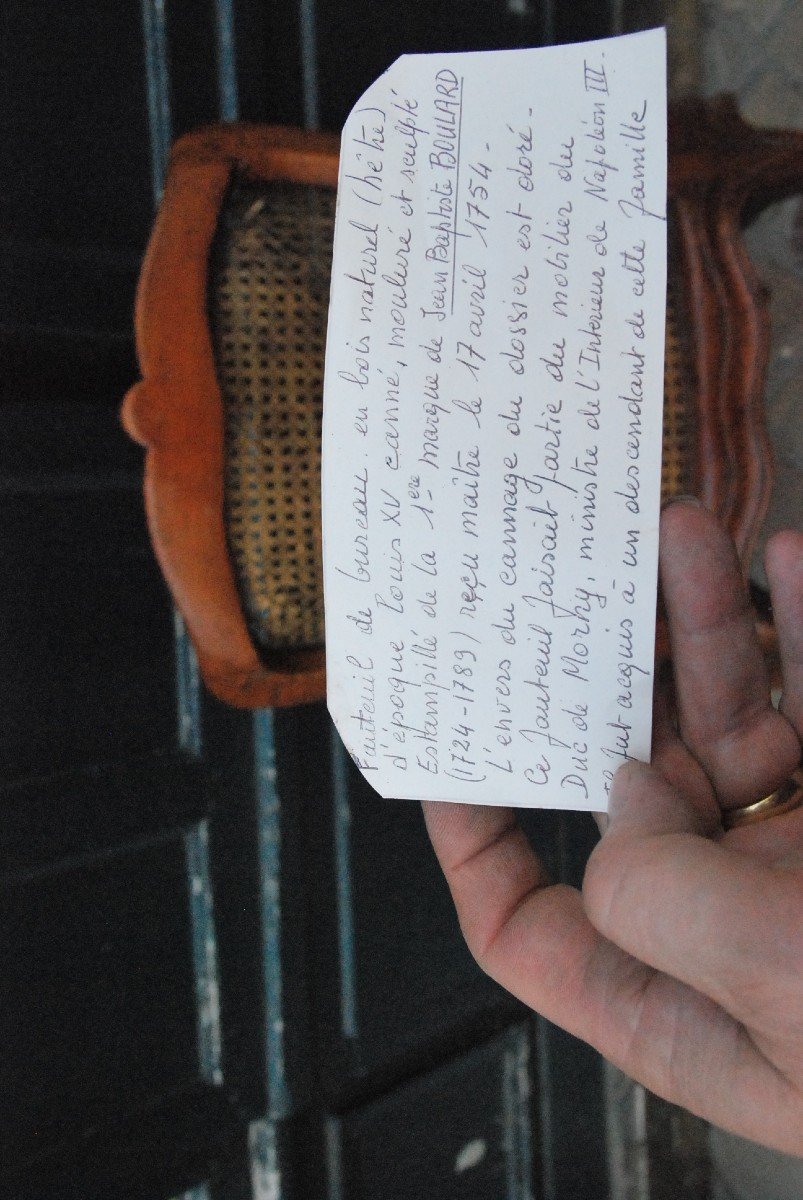 Fauteuil de bureau en bois naturel (hêtre)
d'époque Louis XV canné, mouluré et sculpté
Estampillé de la 1ère marque de Jean Baptiste BOULARD
(1724-1789) reçu maître le 17 avril 1754-
L'envers du cannage du dossier est doré-
Ce fauteuil faisait partie du mobilier du
Duc de Morny, ministre de l'Intérieur de Napoléon III.
fut acquis à un descendant de cette famille